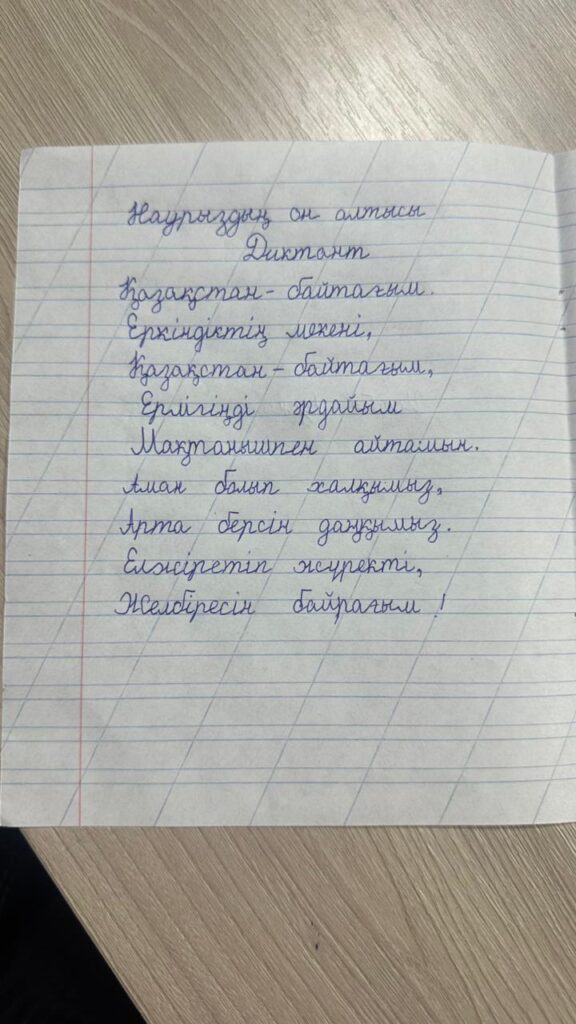 Наурыздың он алтысы
Диктант
Қазақстан - байтағым.
Еркіндіктің мекені,
Қазақстан - байтағым,
Ерлігіңді әрдайым
Мақтанышпен айтамын.
Аман болып халқымыз,
Арта берсін даңқымыз.
Елжіретіп жүректі,
Желбіресін байрағым!